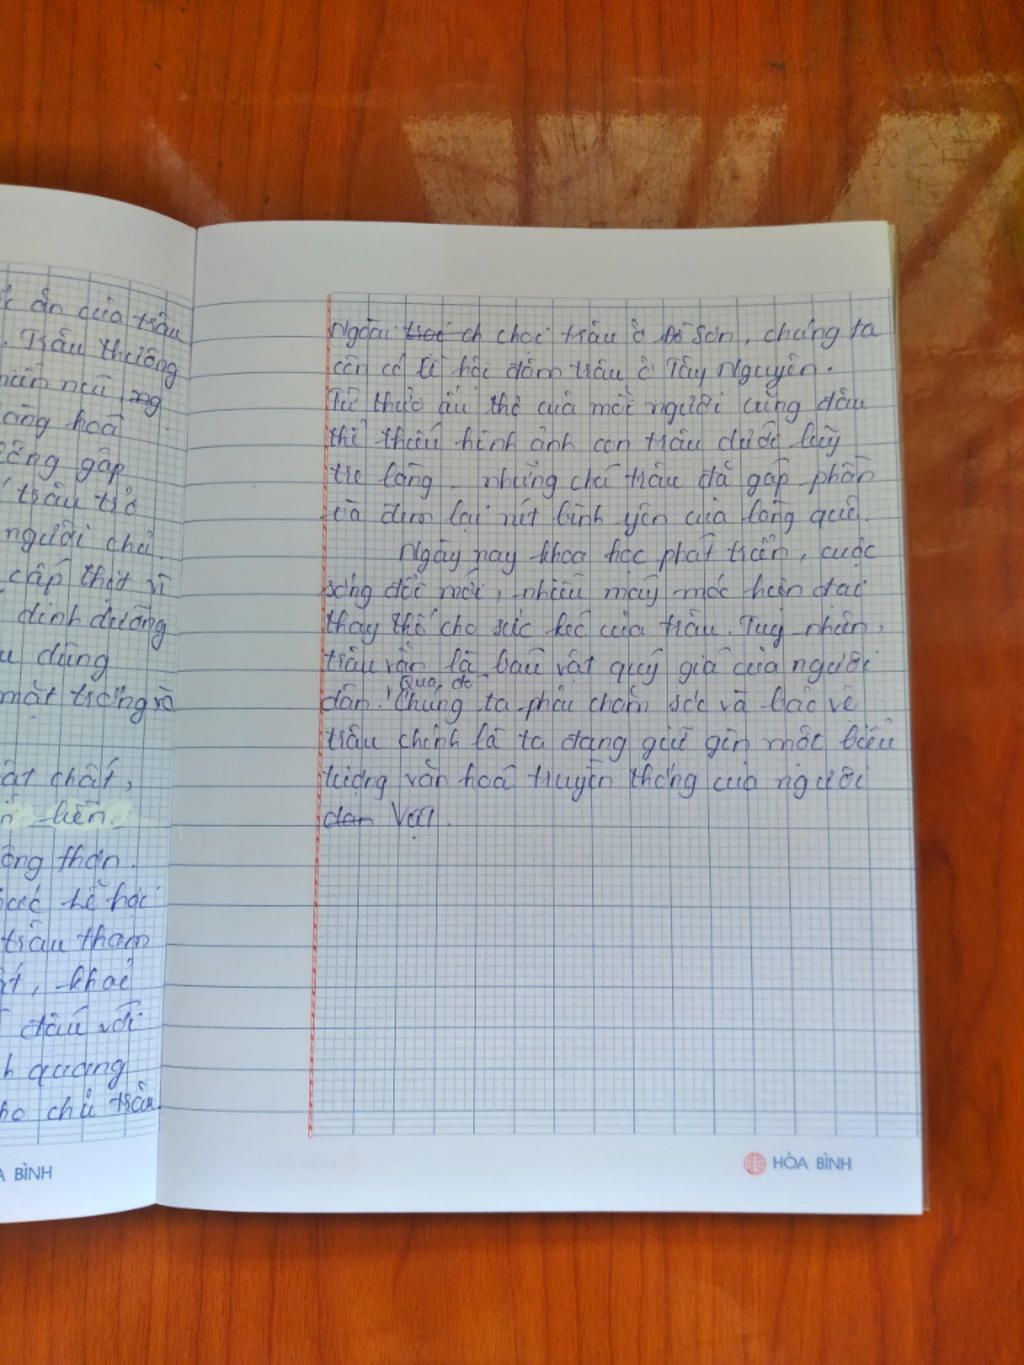 ăn của trâu
. Trâu thường
ăng hoá
gấp
trâu trở
người chủ.
cấp thịt vì
dinh dưỡng
u dùng
mặt trống và
ật chất,
liền
ông thôn.
các hễ học
trâu tham
ất, khoẻ
đấu với
h quang
ho chủ trâu.
A BÌNH
Ngoài ch chọi trâu ở Đồ Sơn, chúng ta
còn có lễ hội đâm trâu ở Tây Nguyên.
Từ thực ấu thơ của mỗi người cũng đâu
thể thiếu hình ảnh con trâu dưới luỹ
tre làng. những chú trâu đã gấp phần
và đem lại nét bình yên của làng quê.
Ngày nay khoa học phát triển, cuộc
sống đổi mới, nhiều máy móc hiện đại
thay thế cho sức kéo của trâu. Tuy nhiên,
trâu vẫn là báu vật quý giá của người
Qua, đó
dân. Chúng ta phải chăm sóc và bảo vệ
trâu chính là ta đang giữ gìn một biểu
tượng văn hoá truyền thống của người
dan Việt.
HÒA BÌNH